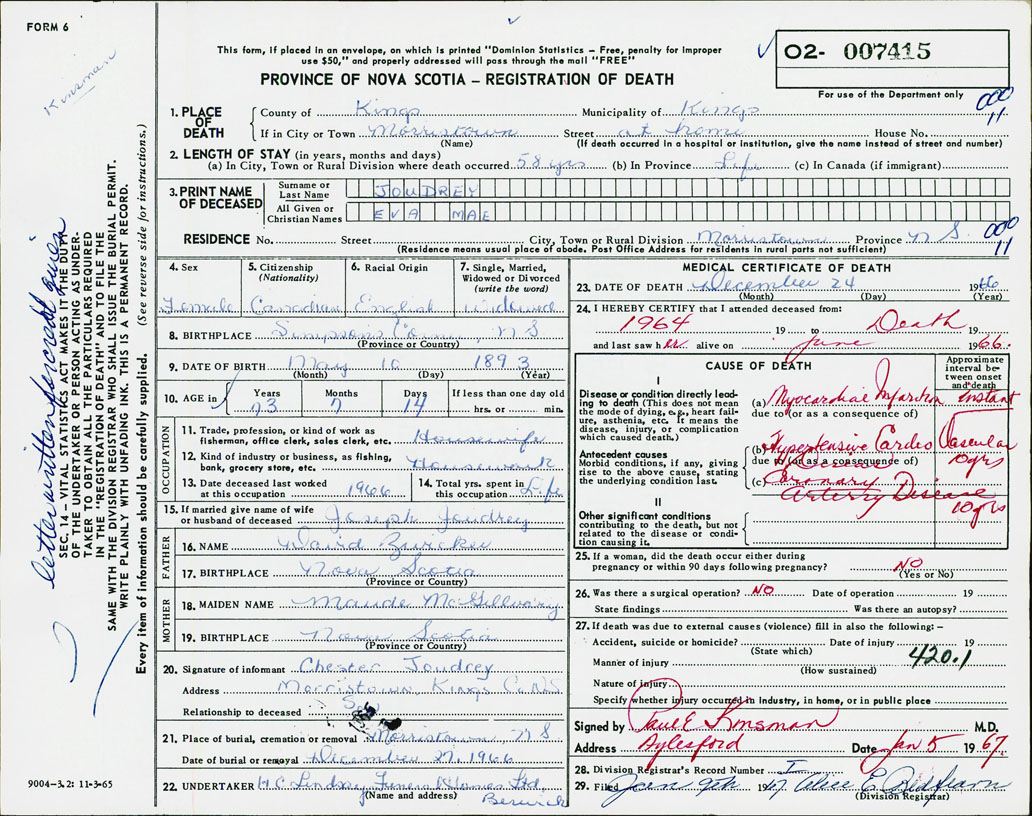 FORM 6
This form, if placed in an envelope, on which is printed "Dominion Statistics – Free, penalty for improper
use $50," and properly addressed will pass through the mail "FREE"
PROVINCE OF NOVA SCOTIA – REGISTRATION OF DEATH
02- 007415
For use of the Department only
000
11
Kinsman
letter written for credit given
SEC. 14 – VITAL STATISTICS ACT MAKES IT THE DUTY
OF THE UNDERTAKER OR PERSON ACTING AS UNDER-
TAKER TO OBTAIN ALL THE PARTICULARS REQUIRED
IN THE "REGISTRATION OF DEATH" AND TO FILE THE
SAME WITH THE DIVISION REGISTRAR WHO SHALL ISSUE THE BURIAL PERMIT.
WRITE PLAINLY WITH UNFADING INK. THIS IS A PERMANENT RECORD.
Every item of information should be carefully supplied. (See reverse side for instructions.)
1. PLACE OF DEATH
County of Kings Municipality of Kings
If in City or Town Morristown Street at home House No.
(Name) (If death occurred in a hospital or institution, give the name instead of street and number)
2. LENGTH OF STAY (in years, months and days)
(a) In City, Town or Rural Division where death occurred 58 yrs (b) In Province Life (c) In Canada (if immigrant)
3. PRINT NAME OF DECEASED
Surname or Last Name JOUDREY
All Given or Christian Names EVA MAE
RESIDENCE No. Street City, Town or Rural Division Morristown Province N S.
(Residence means usual place of abode. Post Office Address for residents in rural parts not sufficient)
000
11
4. Sex Female
5. Citizenship (Nationality) Canadian
6. Racial Origin English
7. Single, Married, Widowed or Divorced (write the word) Widowed
8. BIRTHPLACE Simpsons N S
(Province or Country)
9. DATE OF BIRTH May 10 1893
(Month) (Day) (Year)
10. AGE in Years 73 Months 7 Days 14 If less than one day old hrs. or min.
OCCUPATION
11. Trade, profession or kind of work as
fisherman, office clerk, sales clerk, etc. Housewife
12. Kind of industry or business, as fishing,
bank, grocery store, etc. Housework
13. Date deceased last worked
at this occupation 1966
14. Total yrs. spent in
this occupation Life
15. If married give name of wife
or husband of deceased Joseph Joudrey
FATHER
16. NAME David Zwicker
17. BIRTHPLACE Nova Scotia
(Province or Country)
MOTHER
18. MAIDEN NAME Maude McGillvary
19. BIRTHPLACE Nova Scotia
(Province or Country)
20. Signature of informant Chester Joudrey
Address Morristown Kings Co N.S.
Relationship to deceased Son
21. Place of burial, cremation or removal Morristown N S
Date of burial or removal December 27, 1966
22. UNDERTAKER H.C. Lindsay Funeral Homes Ltd,
(Name and address) Berwick
9004-3.2: 11-3-65
MEDICAL CERTIFICATE OF DEATH
23. DATE OF DEATH December 24 1966
(Month) (Day) (Year)
24. I HEREBY CERTIFY that I attended deceased from:
1964 19 to Death 19
and last saw her alive on June 1966.
CAUSE OF DEATH
Approximate interval between onset and death
I
Disease or condition directly leading
to death (This does not mean
the mode of dying, e.g., heart failure,
asthenia, etc. It means the
disease, injury, or complication
which caused death.)
(a) Myocardial Infarction Instant
due to (or as a consequence of)
Antecedent causes
Morbid conditions, if any, giving
rise to the above cause, stating
the underlying condition last.
(b) Hypertensive Cardio Vascular
due to (or as a consequence of) Disease 10 yrs
(c) Coronary
Artery Disease
10 yrs
II
Other significant conditions
contributing to the death, but not
related to the disease or condition
causing it.
25. If a woman, did the death occur either during
pregnancy or within 90 days following pregnancy? NO
(Yes or No)
26. Was there a surgical operation? NO Date of operation 19
State findings Was there an autopsy?
27. If death was due to external causes (violence) fill in also the following: –
Accident, suicide or homicide? Date of injury 19
(State which)
Manner of injury 420.1
(How sustained)
Nature of injury
Specify whether injury occurred in industry, in home, or in public place
Signed by Paul E Kinsman M.D.
Address Aylesford Date Jan 5 1967
28. Division Registrar's Record Number I
29. Filed Jan 9th 1967 Alice E
(Division Registrar)